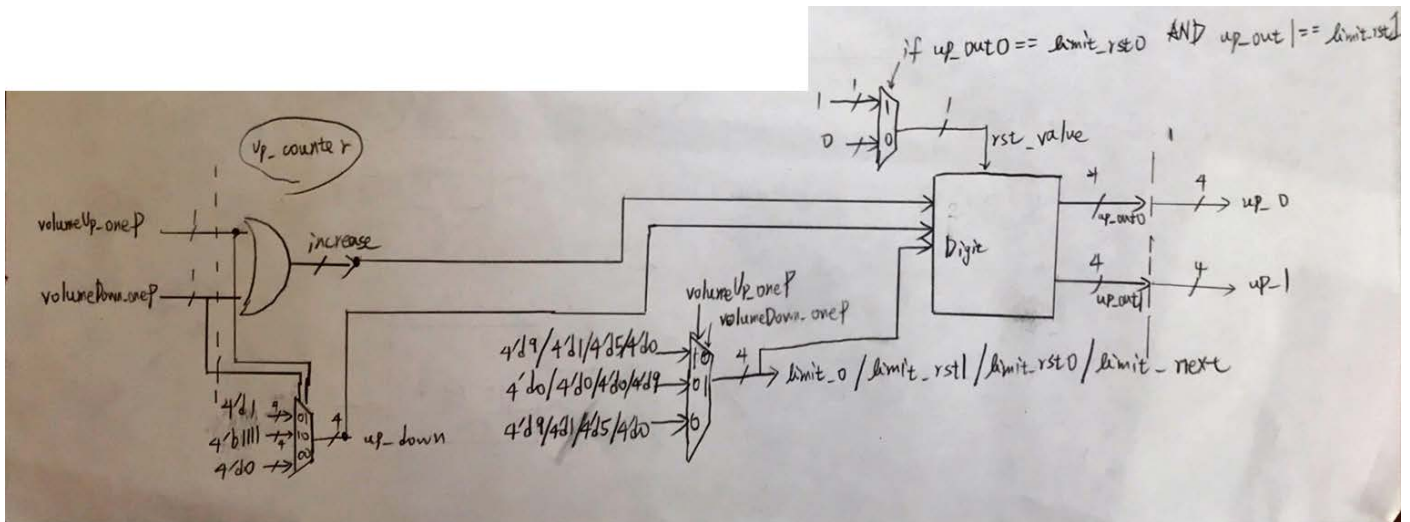 if up_out0 == limit_rst0 AND up_out1 == limit_rst1
1 1 1 1
0 0
rst_value
up_counter
volumeUp_oneP 1
increase
volumeDown_oneP 1
Digit
4 up_out0 4 up_0
4 up_out1 4 up_1
1
volumeUp_oneP
volumeDown_oneP
4'd9/4'd1/4'd5/4'd0 10
4'd0/4'd0/4'd0/4'd9 01
4'd9/4'd1/4'd5/4'd0 0
4 limit_0/limit_rst1/limit_rst0/limit_next
4'd1 01
4'b1111 4 10
4'd0 00
4 up_down